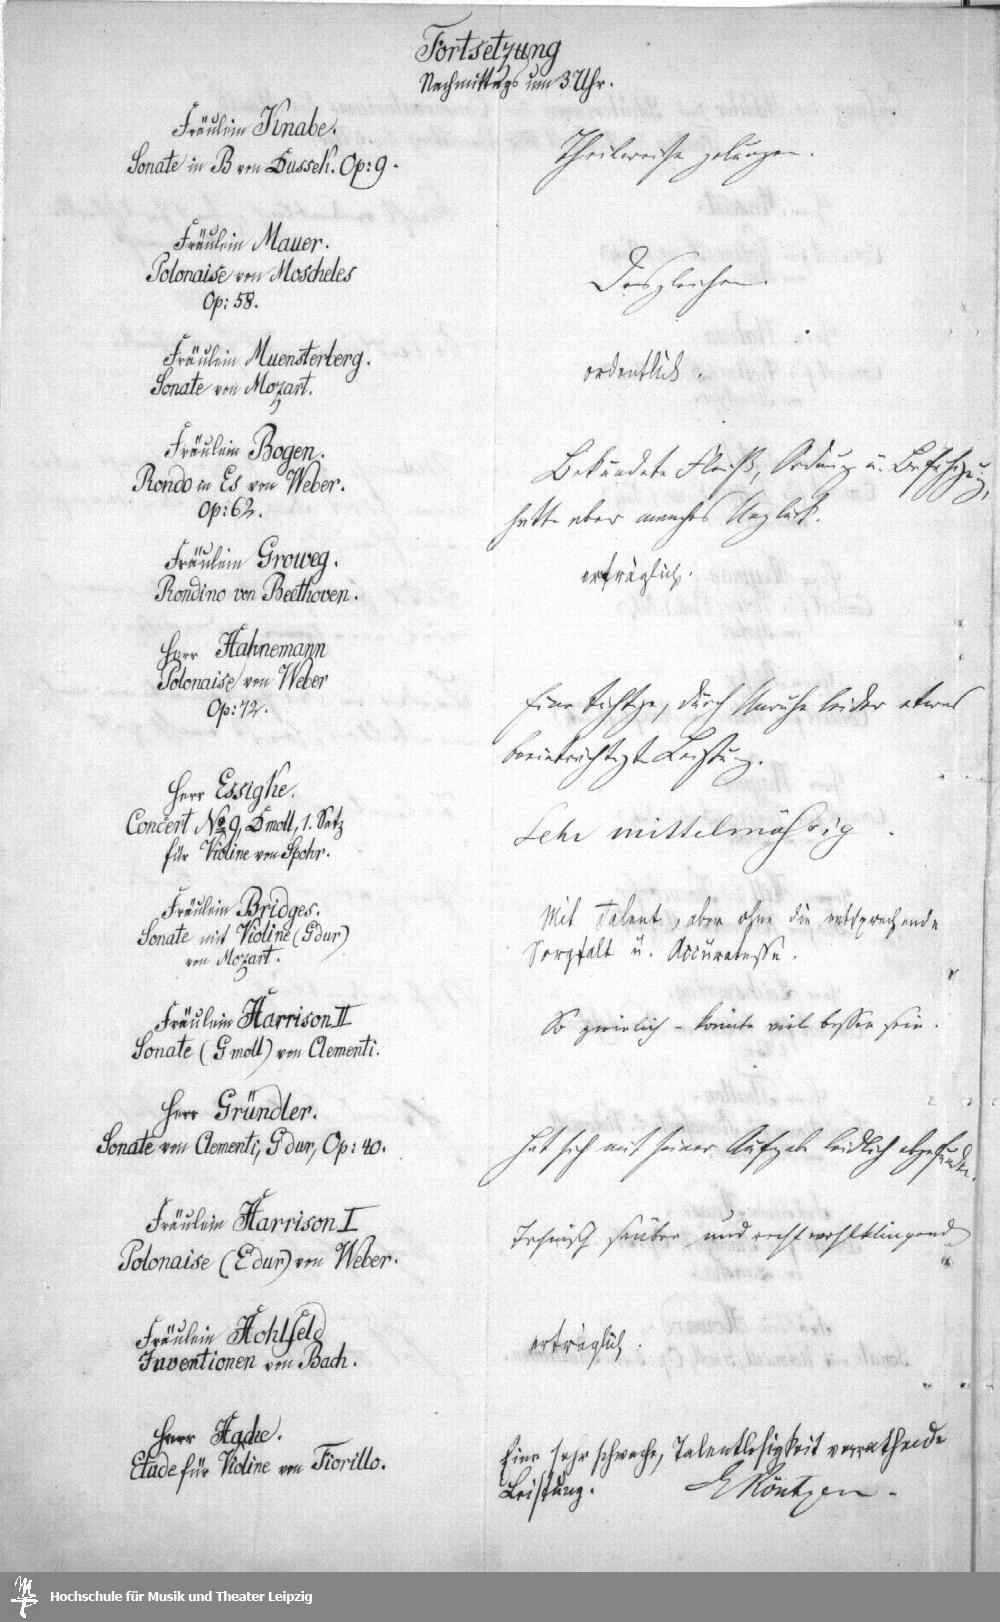 Fortsetzung
Nachmittags um 3 Uhr.
Fräulein Knabe.
Sonate in B von Dussek. Op: 9.
Theilweise gelungen.
Fräulein Mauer.
Polonaise von Moscheles
Op: 58.
Desgleichen.
Fräulein Muensterberg.
Sonate von Mozart.
ordentlich.
Fräulein Bogen.
Rondo in Es von Weber.
Op: 62.
Bekundete Fleiß, Ordnung u. Befähigung,
hatte aber manches Unglück.
Fräulein Groweg.
Rondino von Beethoven.
erträglich.
Herr Hahnemann
Polonaise von Weber
Op: 72.
Eine tüchtige, durch Unruhe leider etwas
beeinträchtigte Leistung.
Herr Essigke.
Concert No 9, Dmoll, 1. Satz
für Violine von Spohr.
Sehr mittelmäßig.
Fräulein Bridges.
Sonate mit Violine (Gdur)
von Mozart.
Mit Talent, aber ohne die entsprechende
Sorgfalt u. Accuratesse.
Fräulein Harrison II
Sonate (Gmoll) von Clementi.
So ziemlich – könnte viel besser sein.
Herr Gründler.
Sonate von Clementi, Gdur, Op: 40.
Hat sich mit seiner Aufgabe leidlich abgefunden.
Fräulein Harrison I
Polonaise (Edur) von Weber.
Technisch sauber und recht wohlklingend
Fräulein Hohlfeld
Inventionen von Bach.
erträglich.
Herr Hache.
Etude für Violine von Fiorillo.
Eine sehr schwache, Talentlosigkeit verrathende
Leistung. E Röntgen.
Hochschule für Musik und Theater Leipzig